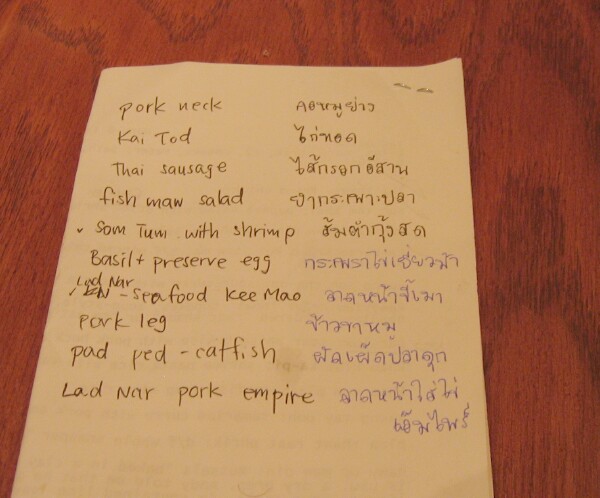 pork neck คอหมูย่าง
Kai Tod ไก่ทอด
Thai sausage ไส้กรอกอีสาน
fish maw salad ยำกระเพาะปลา
Som Tum with shrimp ส้มตำกุ้งสด
Basil + preserve egg กระเพราไข่เยี่ยวม้า
Lad Nar
- Seafood Kee Mao ลาดหน้าขี้เมา
pork leg ข้าวขาหมู
pad ped - catfish ผัดเผ็ดปลาดุก
Lad Nar pork empire ลาดหน้าใส่ไข่
เอ็มไพร์